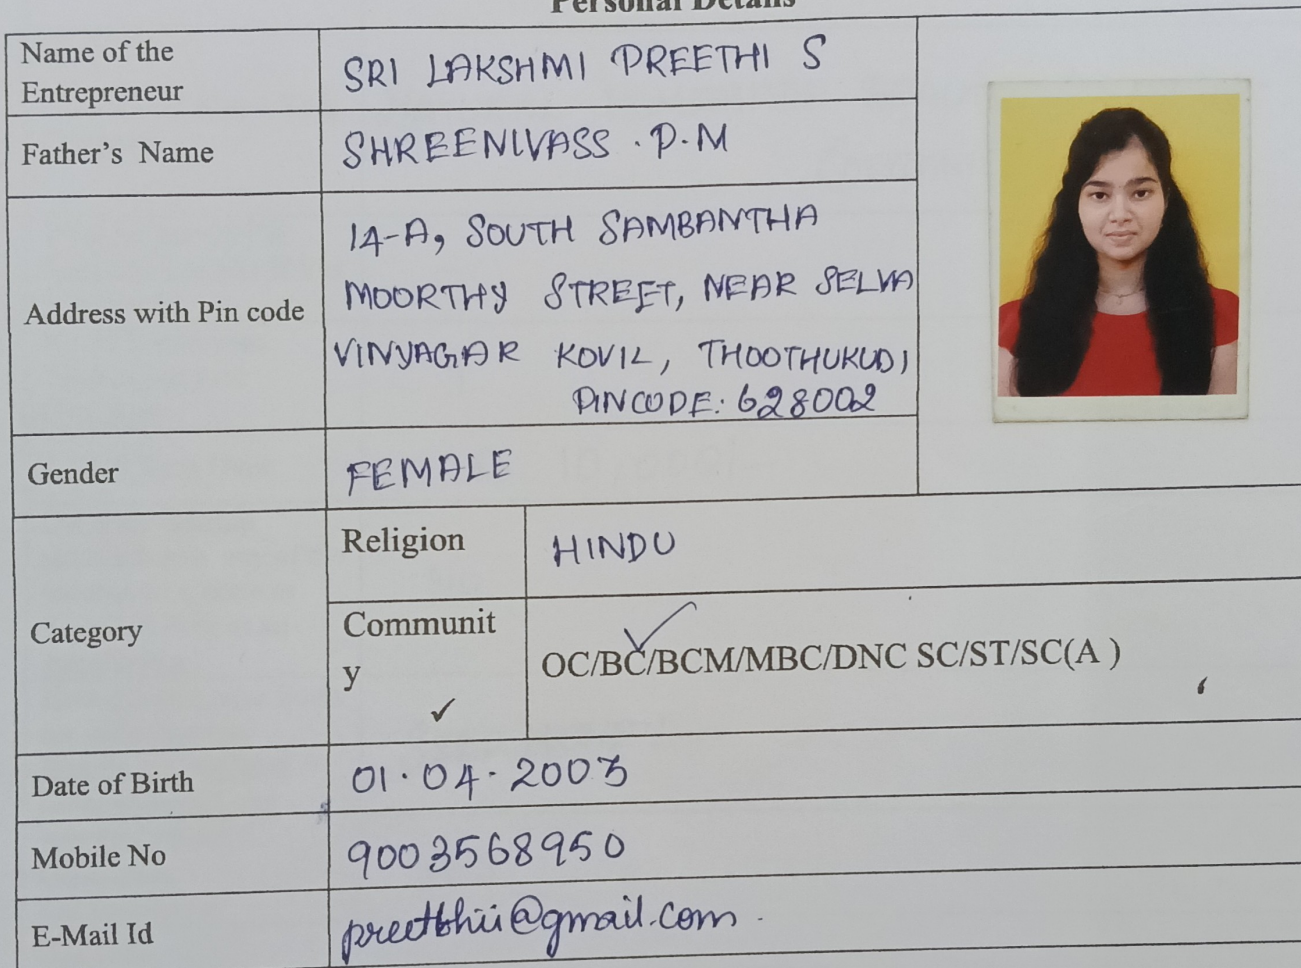 Personal Details
Name of the
Entrepreneur
SRI LAKSHMI PREETHI S
Father's Name
SHREENIVASS . P.M
Address with Pin code
14-A, SOUTH SAMBANTHA
MOORTHY STREET, NEAR SELVA
VINYAGAR KOVIL, THOOTHUKUDI
PINCODE: 628002
Gender
FEMALE
Category
Religion
HINDU
Communit
y
✓
OC/BC/BCM/MBC/DNC SC/ST/SC(A )
Date of Birth
01.04.2003
Mobile No
9003568950
E-Mail Id